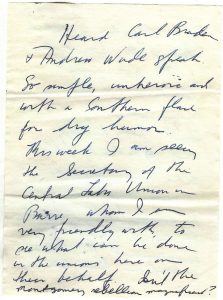 Heard Carl Braden
& Andrew Wade speak
So simple, unheroic and
with a Southern flare
for dry humor.
This week I am seeing
the Secretary of the
Central Labor Union in
Barre, whom I am
very friendly with, to
see what can be done
in the unions here on
their behalf. Isn't the
Montgomery rebellion magnificent?